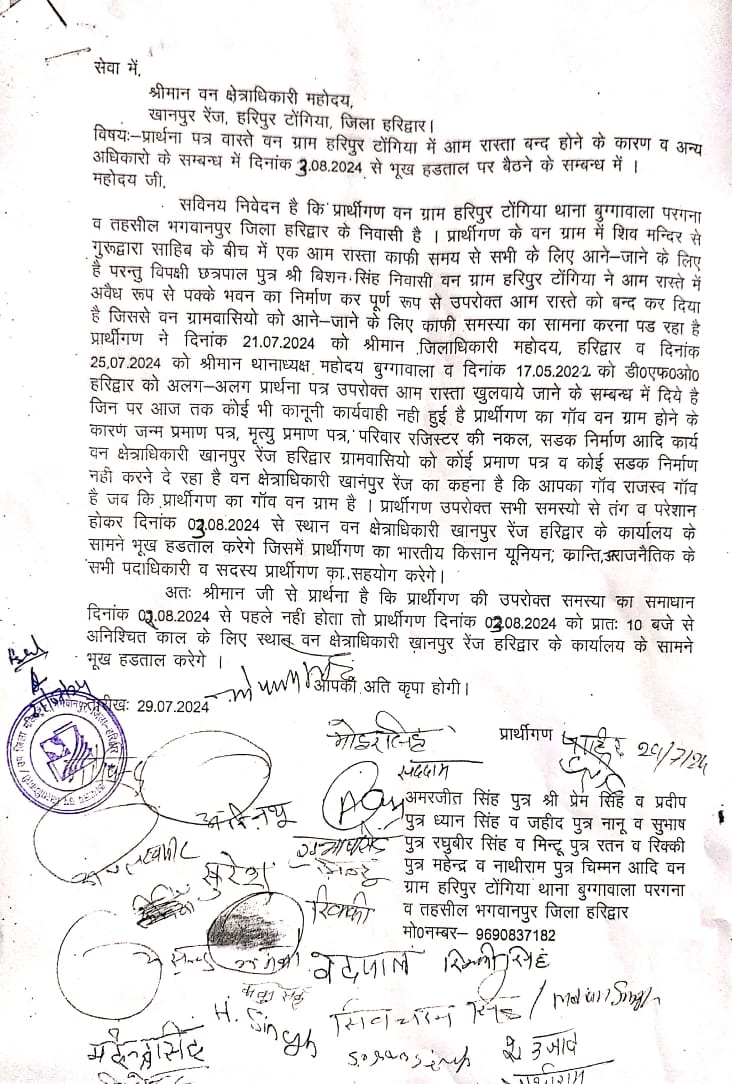 सेवा में,
श्रीमान वन क्षेत्राधिकारी महोदय,
खानपुर रेंज, हरिपुर टोंगिया, जिला हरिद्वार।
विषयः–प्रार्थना पत्र वास्ते वन ग्राम हरिपुर टोंगिया में आम रास्ता बन्द होने के कारण व अन्य
अधिकारो के सम्बन्ध में दिनांक 3.08.2024 से भूख हडताल पर बैठने के सम्बन्ध में ।
महोदय जी,
सविनय निवेदन है कि प्रार्थीगण वन ग्राम हरिपुर टोंगिया थाना बुग्गावाला परगना
व तहसील भगवानपुर जिला हरिद्वार के निवासी है । प्रार्थीगण के वन ग्राम में शिव मन्दिर से
गुरूद्वारा साहिब के बीच में एक आम रास्ता काफी समय से सभी के लिए आने–जाने के लिए
है परन्तु विपक्षी छत्रपाल पुत्र श्री बिशन सिंह निवासी वन ग्राम हरिपुर टोंगिया ने आम रास्ते में
अवैध रूप से पक्के भवन का निर्माण कर पूर्ण रूप से उपरोक्त आम रास्ते को बन्द कर दिया
है जिससे वन ग्रामवासियो को आने–जाने के लिए काफी समस्या का सामना करना पड रहा है
प्रार्थीगण ने दिनांक 21.07.2024 को श्रीमान जिलाधिकारी महोदय, हरिद्वार व दिनांक
25.07.2024 को श्रीमान थानाध्यक्ष महोदय बुग्गावाला व दिनांक 17.05.2022 को डी०एफ०ओ०
हरिद्वार को अलग–अलग प्रार्थना पत्र उपरोक्त आम रास्ता खुलवाये जाने के सम्बन्ध में दिये है
जिन पर आज तक कोई भी कानूनी कार्यवाही नही हुई है प्रार्थीगण का गॉव वन ग्राम होने के
कारण जन्म प्रमाण पत्र, मृत्यु प्रमाण पत्र, परिवार रजिस्टर की नकल, सडक निर्माण आदि कार्य
वन क्षेत्राधिकारी खानपुर रेंज हरिद्वार ग्रामवासियो को कोई प्रमाण पत्र व कोई सडक निर्माण
नही करने दे रहा है वन क्षेत्राधिकारी खानपुर रेंज का कहना है कि आपका गॉव राजस्व गॉव
है जब कि प्रार्थीगण का गॉव वन ग्राम है । प्रार्थीगण उपरोक्त सभी समस्यो से तंग व परेशान
होकर दिनांक 03.08.2024 से स्थान वन क्षेत्राधिकारी खानपुर रेंज हरिद्वार के कार्यालय के
सामने भूख हडताल करेगे जिसमें प्रार्थीगण का भारतीय किसान यूनियन, कान्ति,अराजनैतिक के
सभी पदाधिकारी व सदस्य प्रार्थीगण का सहयोग करेगे।
अतः श्रीमान जी से प्रार्थना है कि प्रार्थीगण की उपरोक्त समस्या का समाधान
दिनांक 03.08.2024 से पहले नही होता तो प्रार्थीगण दिनांक 03.08.2024 को प्रातः 10 बजे से
अनिश्चित काल के लिए स्थान वन क्षेत्राधिकारी खानपुर रेंज हरिद्वार के कार्यालय के सामने
भूख हडताल करेगे ।
आपकी अति कृपा होगी।
तारीखः 29.07.2024
प्रार्थीगण
29/7/24
सद्दाम
अमरजीत सिंह पुत्र श्री प्रेम सिंह व प्रदीप
पुत्र ध्यान सिंह व जहीद पुत्र नानू व सुभाष
पुत्र रघुबीर सिंह व मिन्टू पुत्र रतन व रिक्की
पुत्र महेन्द्र व नाथीराम पुत्र चिम्मन आदि वन
ग्राम हरिपुर टोंगिया थाना बुग्गावाला परगना
व तहसील भगवानपुर जिला हरिद्वार
मो०नम्बर– 9690837182
सुरेश
रिक्की
वेदपाल
H. Singh